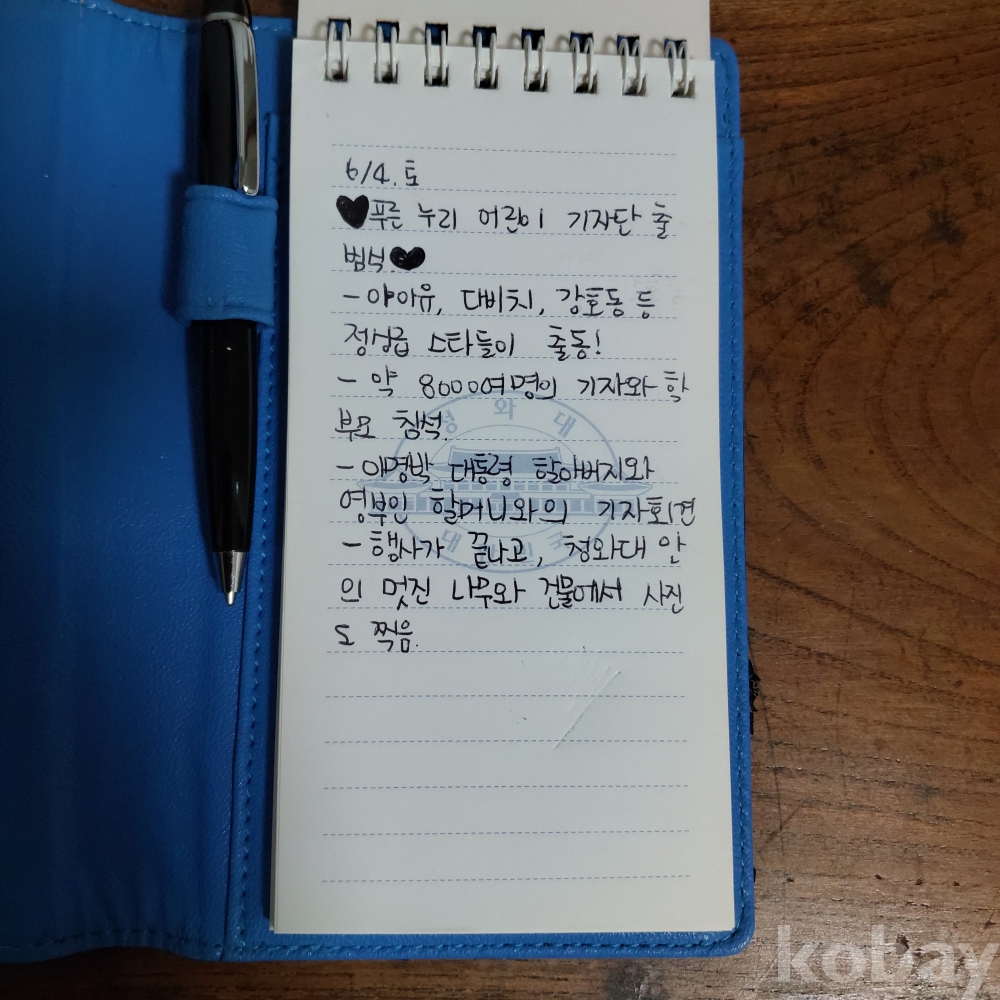 6/4.토
♥푸른 누리 어린이 기자단 출
범식.♥
-아이유, 다비치, 강호동 등
정상급 스타들이 출동!
- 약 8000여명의 기자와 학
부모 참석.
-이명박 대통령 할아버지와
영부인 할머니와의 기자회견
- 행사가 끝나고, 청와대 안
의 멋진 나무와 건물에서 사진
도 찍음.
청와대
대한민국
kobay